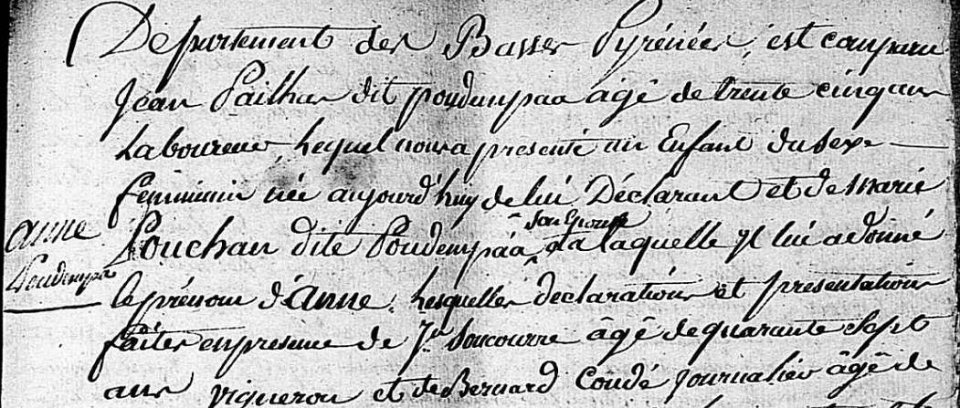 Département des Basses Pyrénées, est comparu
Jean Pailhas dit poudempaa âgé de trente cinq ans
Laboureur, Lequel nous a présenté un Enfant du Sexe
féminin née aujourd'huy de lui Déclarant et de Marie
Anne Pouchan dite Poudempaa à laquelle yl lui a donné
Poudempaa le prénom d'Anne. Lesquelles déclarations et présentations
faites en présence de Jn Soucourre âgé de quarante Sept
ans vigneron et de Bernard Condé journalier âgé de